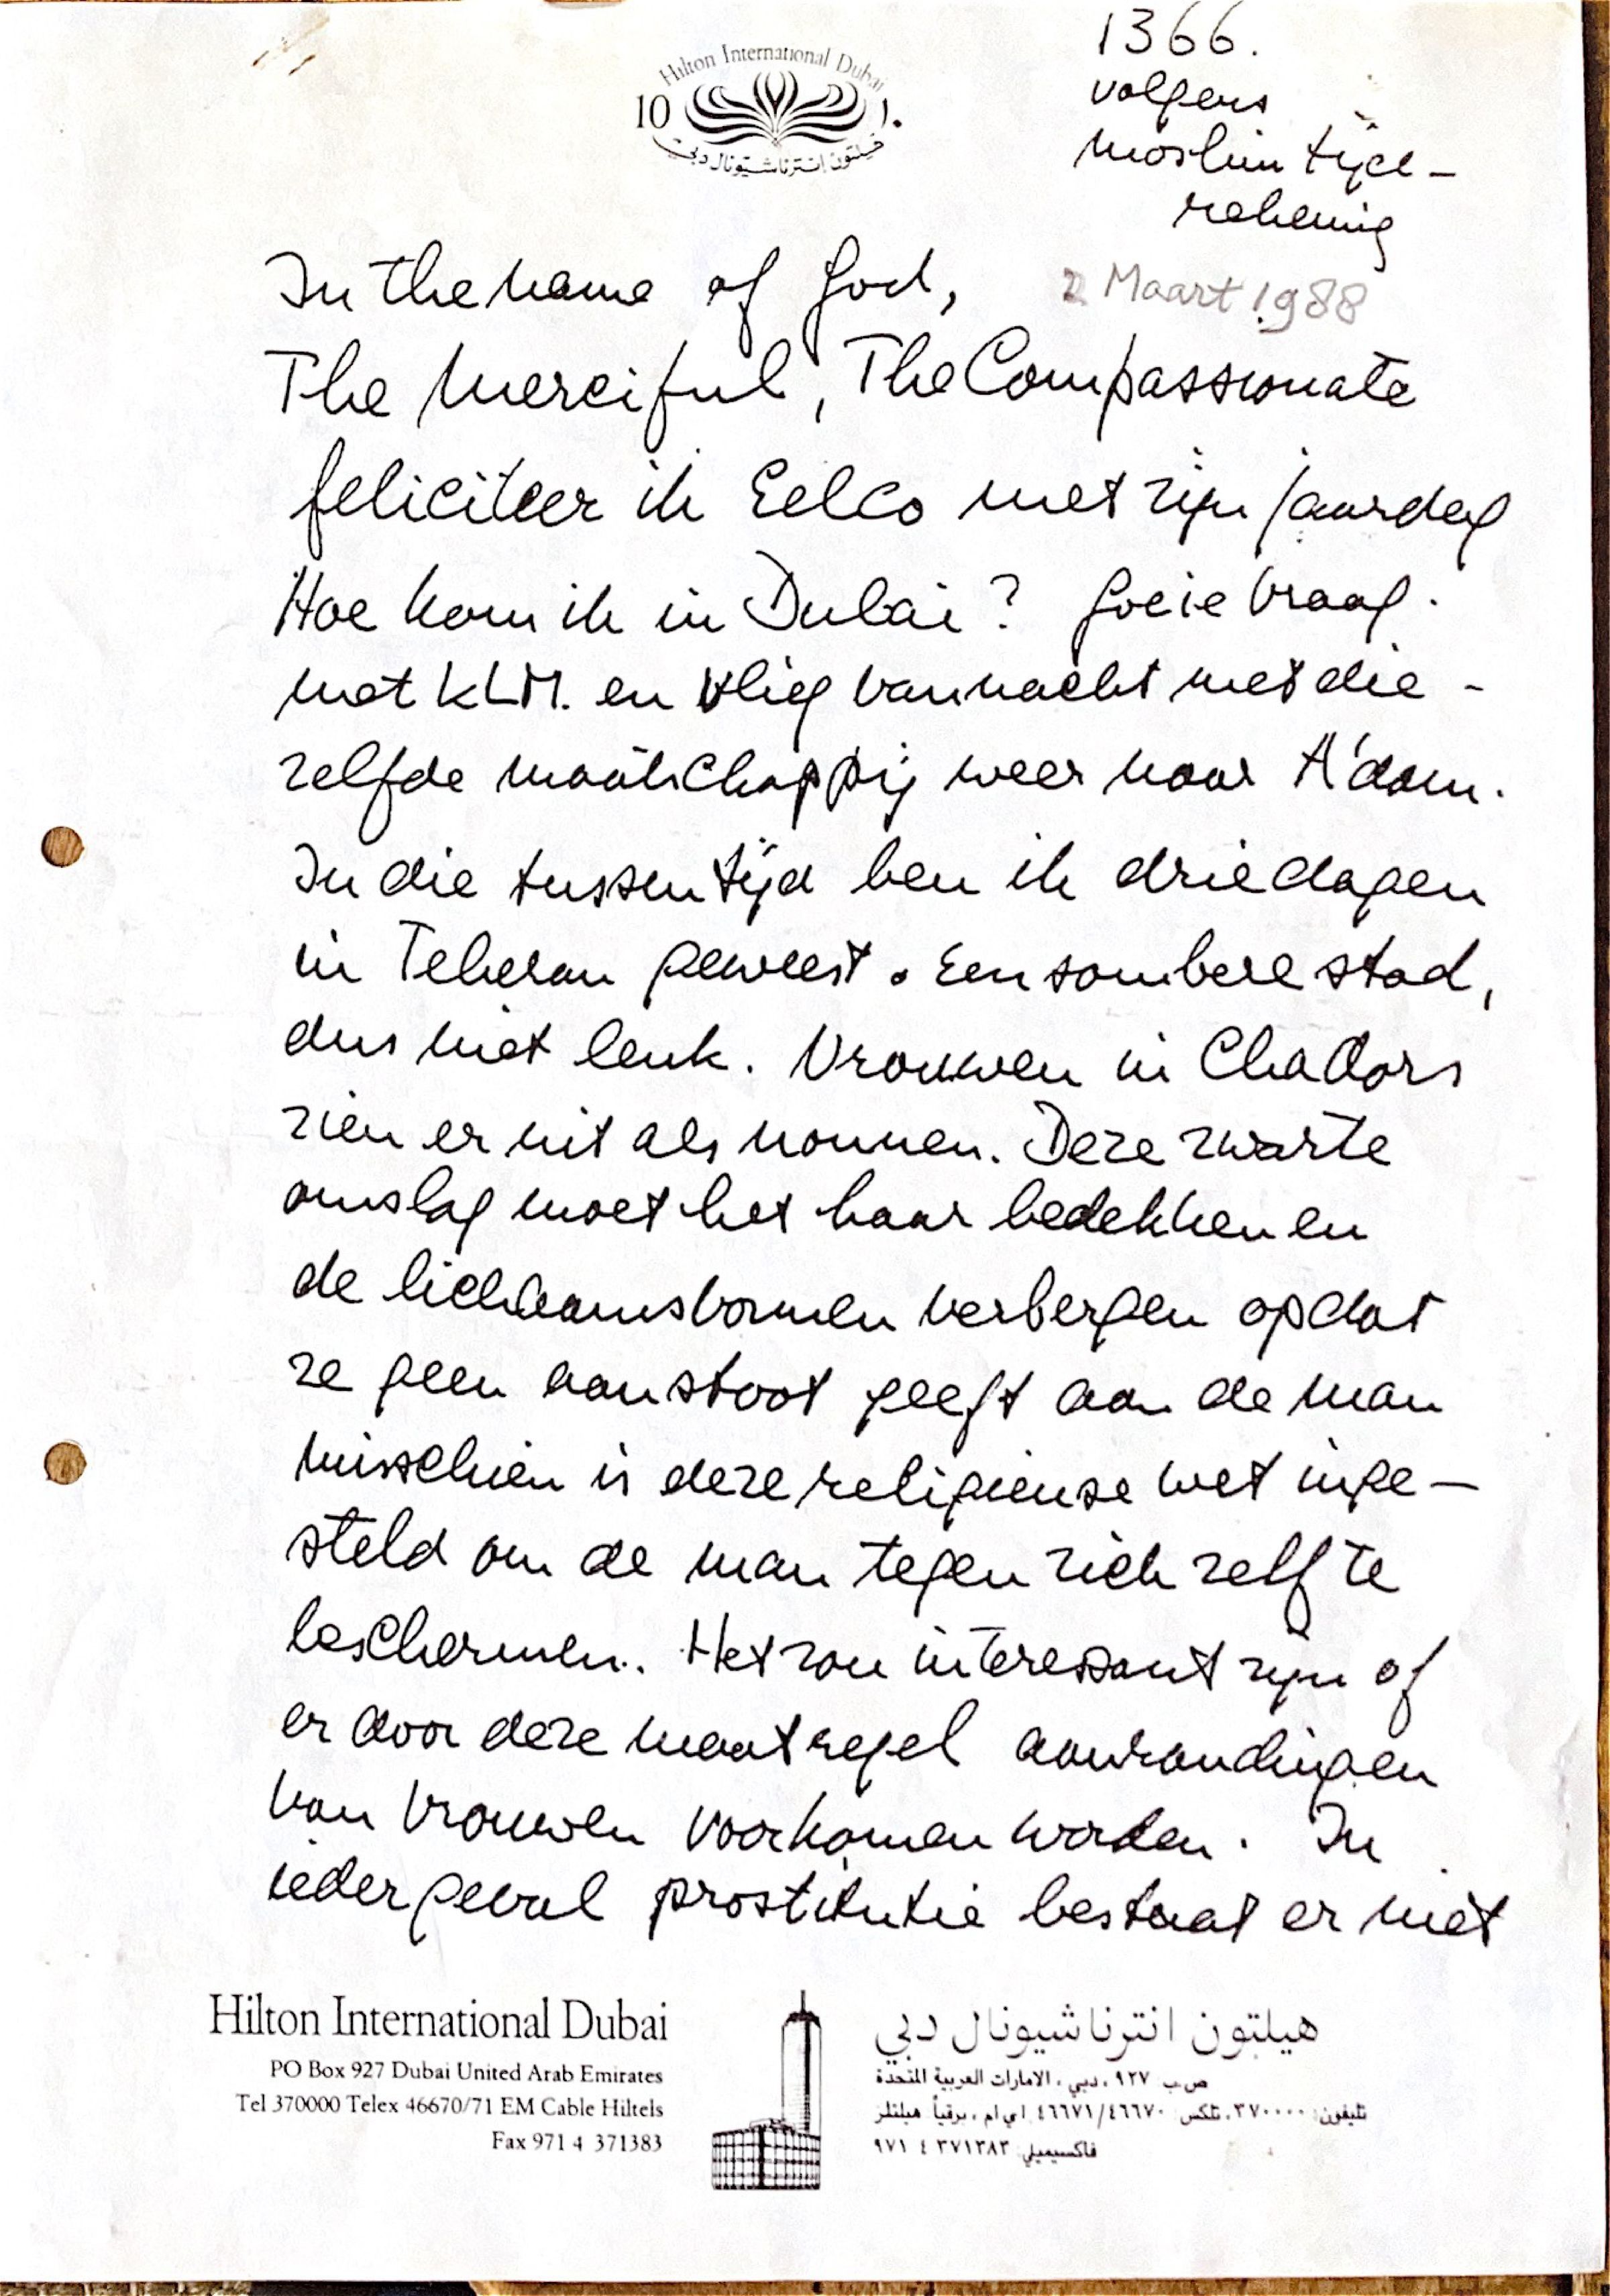 Hilton International Dubai
10 ١٠
هيلتون انترناشيونال دبي
1366.
volgens
moslim tijd-
rekening
In the name of God,
2 Maart 1988
The Merciful, The Compassionate
feliciteer ik Eelco met zijn jaardag
Hoe kom ik in Dubai? Goeie vraag.
met KLM. en vlieg vannacht met die-
zelfde maatschappij weer naar A'dam.
In die tussentijd ben ik drie dagen
in Teheran geweest. Een sombere stad,
dus niet leuk. Vrouwen in Chadors
zien er uit als nonnen. Deze zwarte
omslag moet het haar bedekken en
de lichaamsvormen verbergen opdat
ze geen aanstoot geeft aan de man
misschien is deze religieuse wet inge-
steld om de man tegen zich zelf te
beschermen. Het zou interessant zijn of
er door deze maatregel aanrandingen
van vrouwen voorkomen worden. In
ieder geval prostitutie bestaat er niet
Hilton International Dubai
PO Box 927 Dubai United Arab Emirates
Tel 370000 Telex 46670/71 EM Cable Hiltels
Fax 971 4 371383
هيلتون انترناشيونال دبي
ص.ب ٩٢٧، دبي، الامارات العربية المتحدة
تليفون: ٣٧٠٠٠٠، تلكس: ٤٦٦٧١/٤٦٦٧٠ اي ام، برقياً: هيلتلز
فاكسيميلي: ٣٧١٣٨٣ ٤ ٩٧١